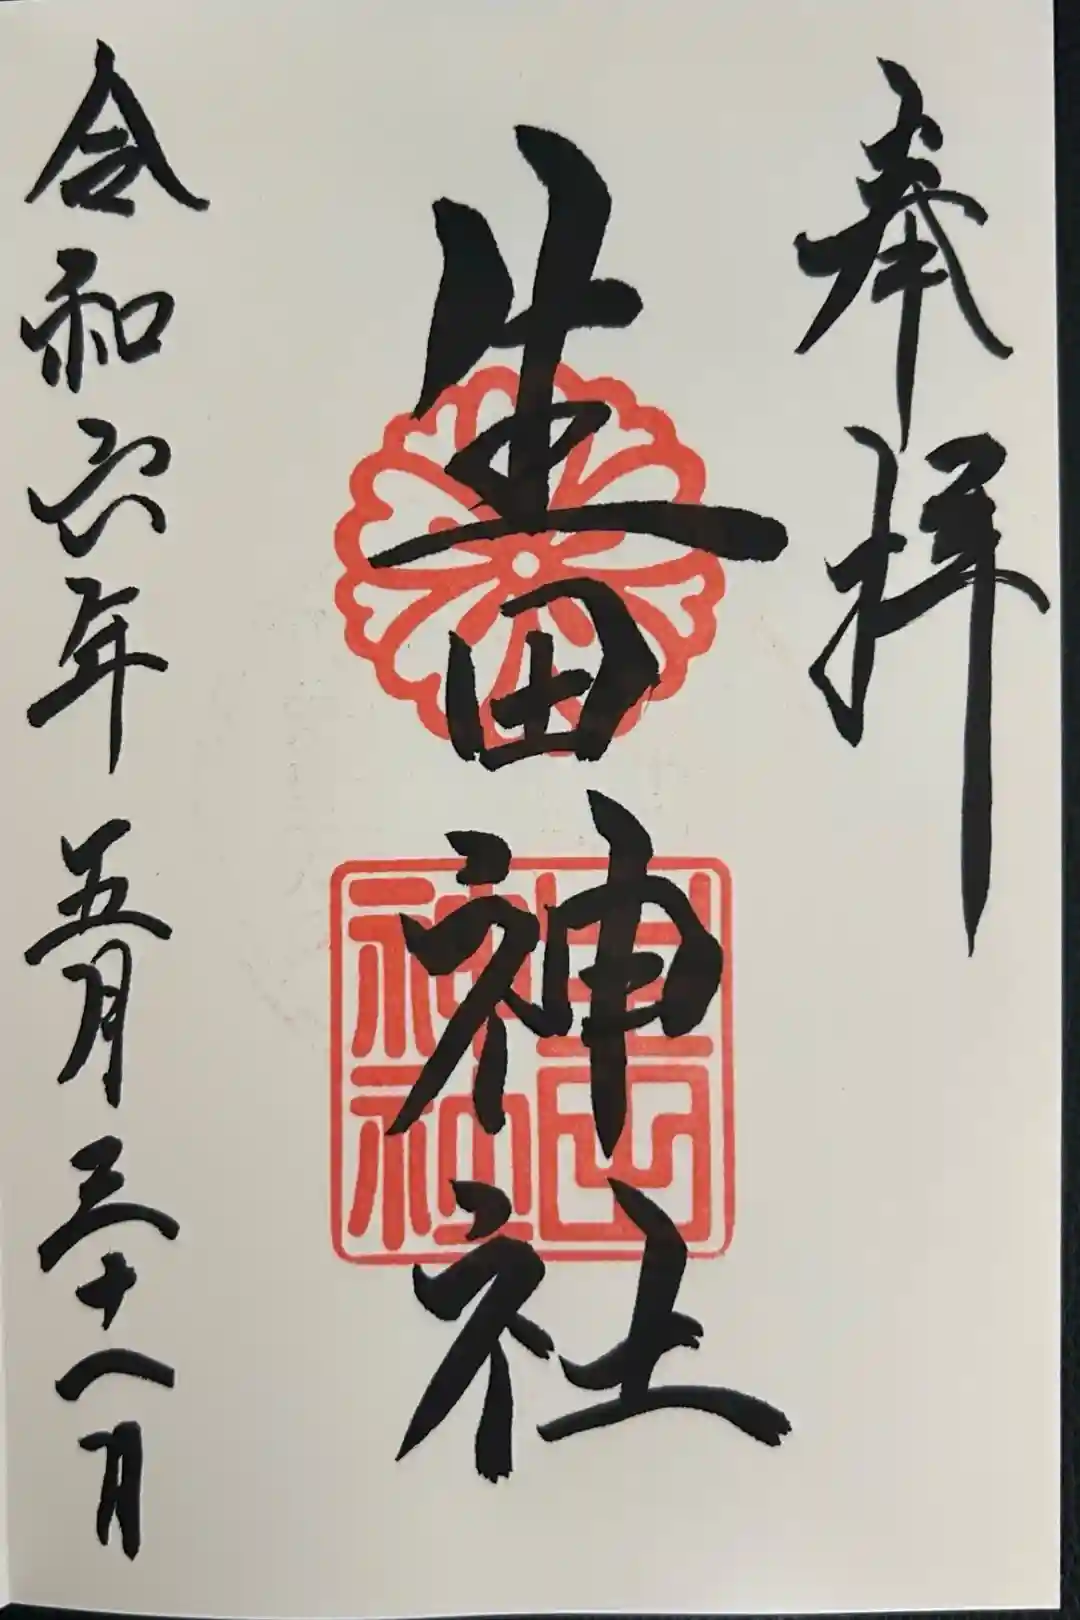 奉拝
生田神社
生田神社
令和六年五月三十一日